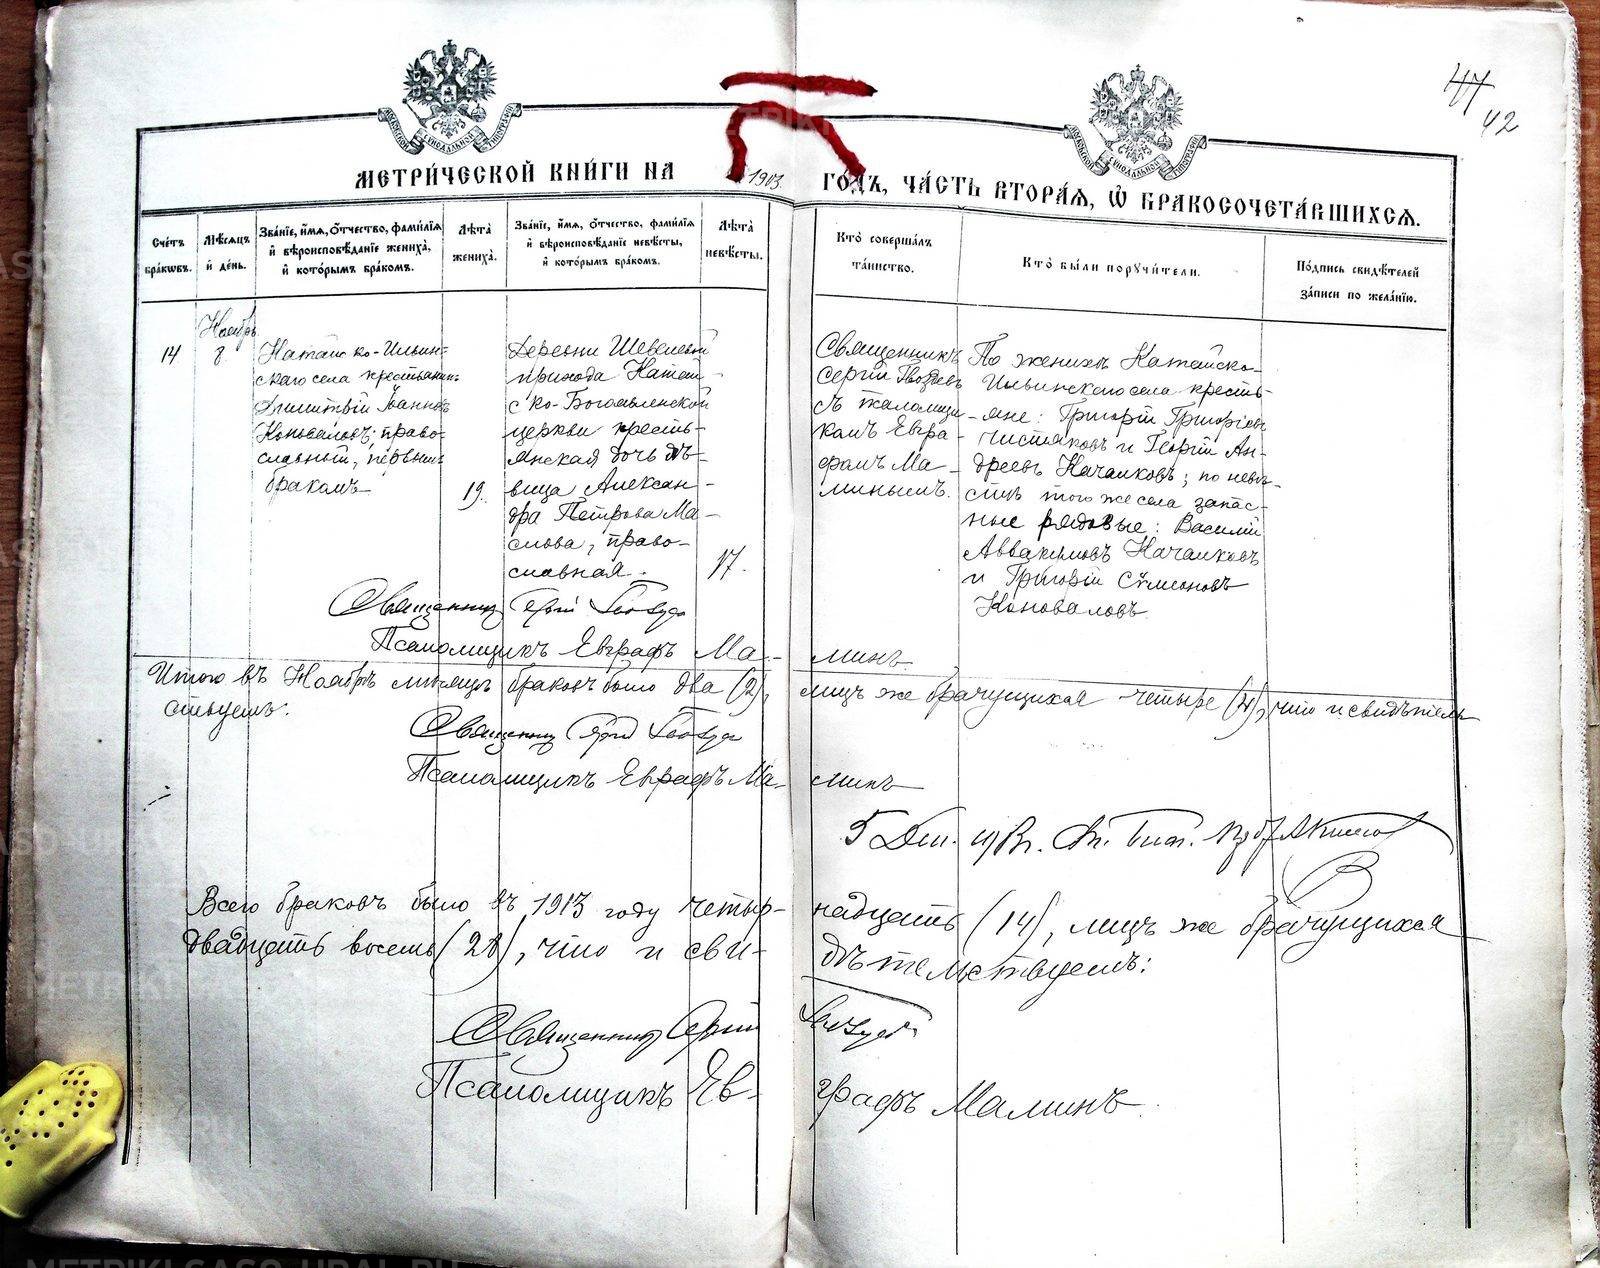 47
42
МОСКОВСКОЙ СѴНОДАЛЬНОЙ ТИПОГРАФІИ
МОСКОВСКОЙ СѴНОДАЛЬНОЙ ТИПОГРАФІИ
МЕТРИ́ЧЕСКОЙ КНИ́ГИ НА 1903 ГО́ДЪ, ЧА́СТЬ ВТОРА́Я, Ѽ БРАКОСОЧЕТА́ВШИХСЯ.
Сче́тъ
бра́кѡвъ.
Мѣ́сяцъ
и҆ де́нь.
Зва́нїе, и҆́мя, ѻ҆́тчество, фами́лїя
и҆ вѣроисповѣ́данїе жениха̀,
и҆ кото́рымъ бра́комъ.
Лѣ́та
жениха̀.
Зва́нїе, и҆́мя, ѻ҆́тчество, фами́лїя
и҆ вѣроисповѣ́данїе невѣ́сты,
и҆ кото́рымъ бра́комъ.
Лѣ́та
невѣ́сты.
Кто̀ соверша́лъ
та́инство.
Кто̀ бы́ли поручи́тели.
По́дпись свидѣ́телей
за́писи по жела́нїю.
14
Ноябрь
8.
Катайско-Ильин-
скаго села крестьянинъ
Димитрій Іоанновъ
Коноваловъ, право-
славный, первымъ
бракомъ
19.
Деревни Шевелевой
прихода Катай-
ско-Богоявленской
церкви кресть-
янская дочь дѣ-
вица Алексан-
дра Петрова Ма-
слова, право-
славная.
17.
Священникъ
Сергій Гвоздевъ
съ псаломщи-
комъ Евгра-
фомъ Ма-
линымъ.
По женихѣ Катайско-
Ильинскаго села кресть-
яне: Григорій Григорьевъ
Чистяковъ и Георгій Ан-
дреевъ Качалковъ; по невѣ-
стѣ того же села запас-
ные рядовые: Василій
Аввакумовъ Качалковъ
и Григорій Сѵмеоновъ
Коноваловъ.
Священникъ Сергій Гвоздевъ
Псаломщикъ Евграфъ Ма-линъ.
Итого въ Ноябрѣ мѣсяцѣ браковъ было два (2), лицъ же брачущихся четыре (4), что и свидѣтель-
ствуемъ.
Священникъ Сергій Гвоздевъ
Псаломщикъ Евграфъ Ма-линъ
Всего браковъ было въ 1913 году четыр-надцать (14), лицъ же брачущихся
двадцать восемь (28), что и сви-дѣтельствуемъ:
Священникъ Сергій Гвоздевъ
Псаломщикъ Ев-графъ Малинъ.